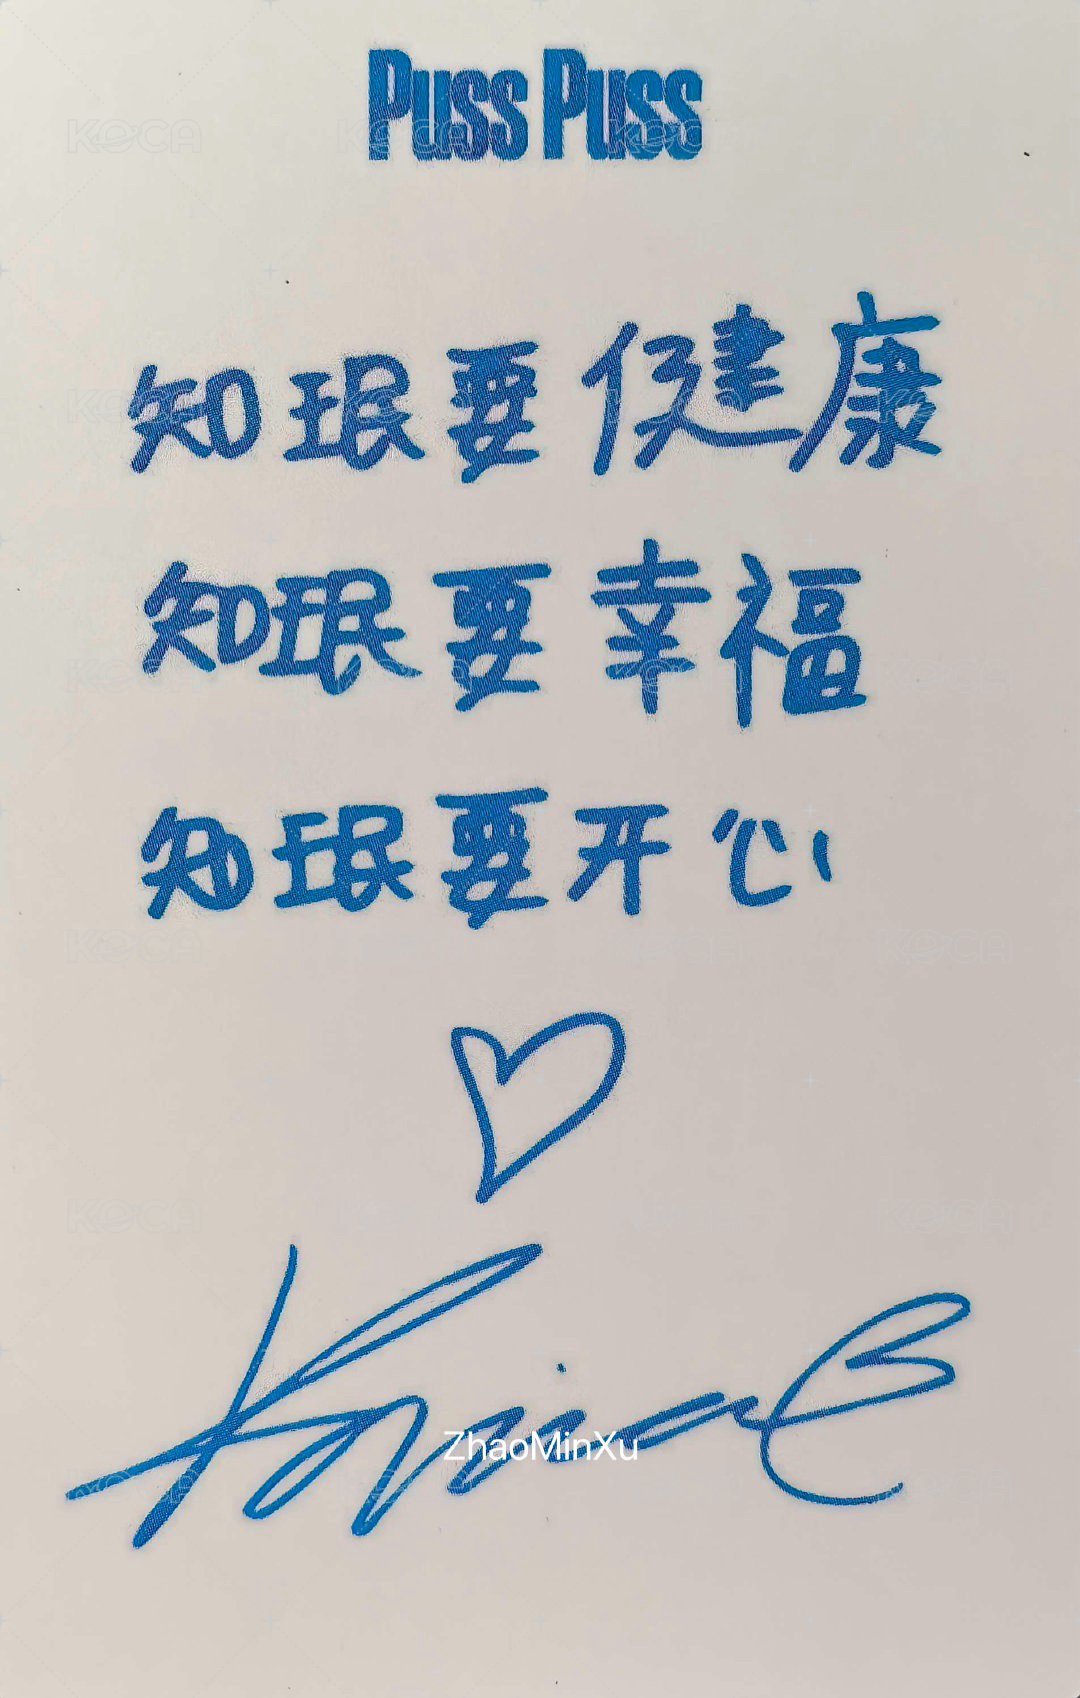 Puss Puss
知珉要健康
知珉要幸福
知珉要开心
Karina
ZhaoMinXu
KOCA